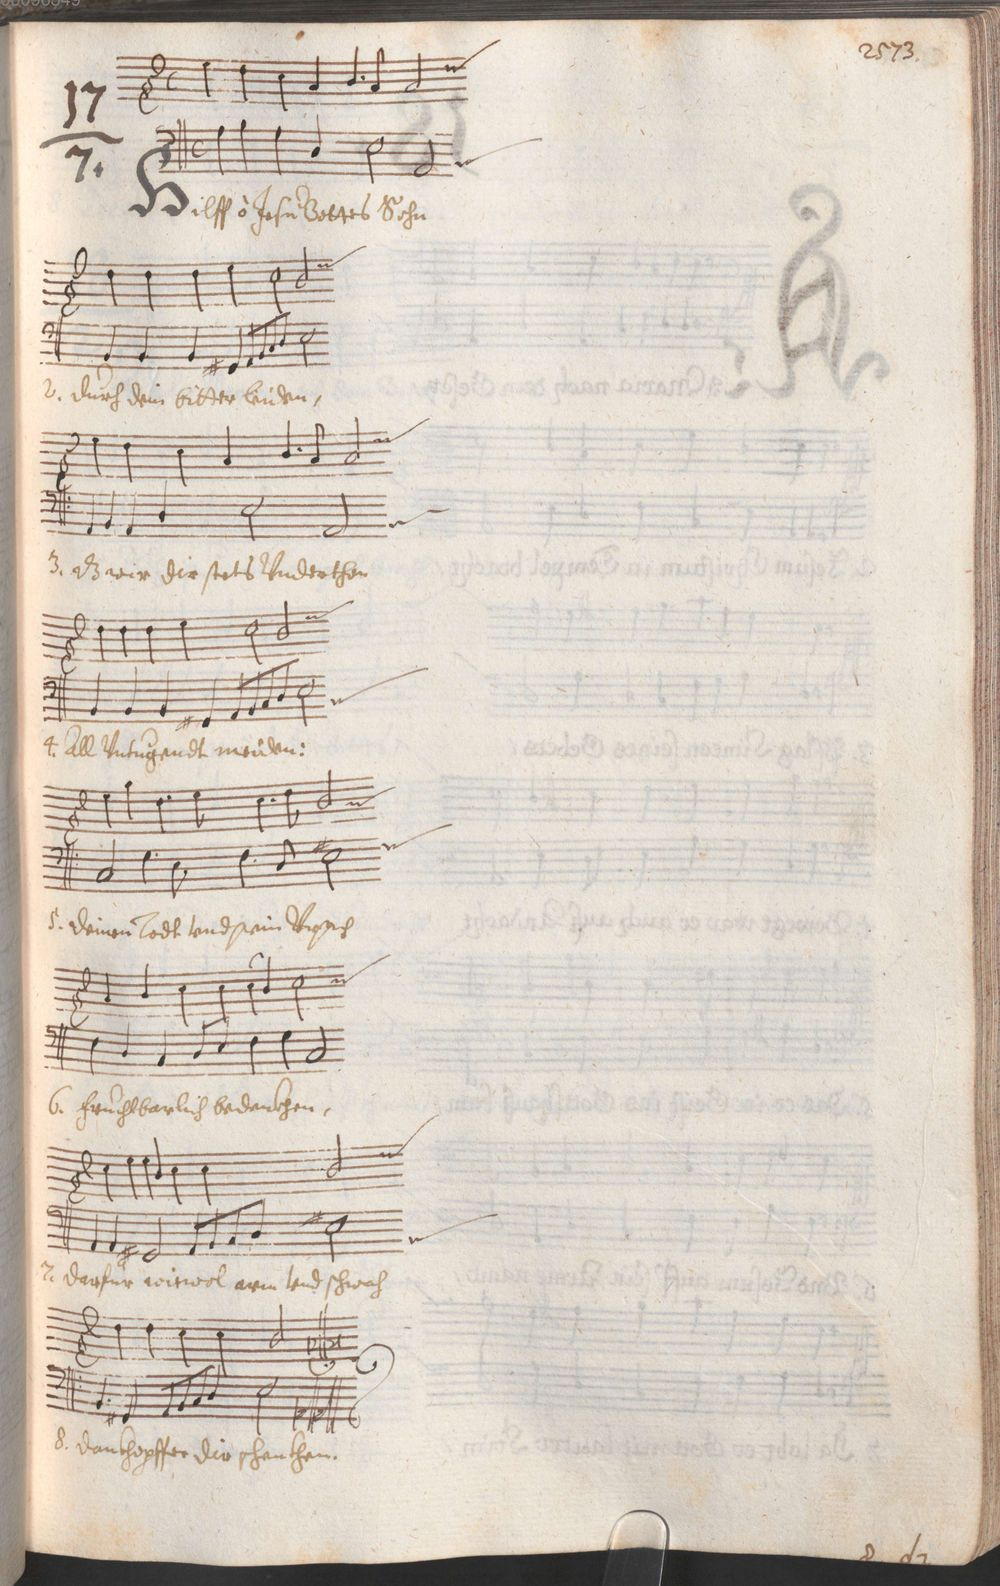 2573.
17
7.
Hilff ô Jesu Gottes Sohn
2. durch dein bitter leiden,
3. dz wir dir stets Underthon
4. All Untugendt meiden:
5. deinen Todt und sein Ursach
6. fruchtbarlich bedenckhen,
7. darfur wiewol arm und schwach
8. danckhopffer dir schenckhen.